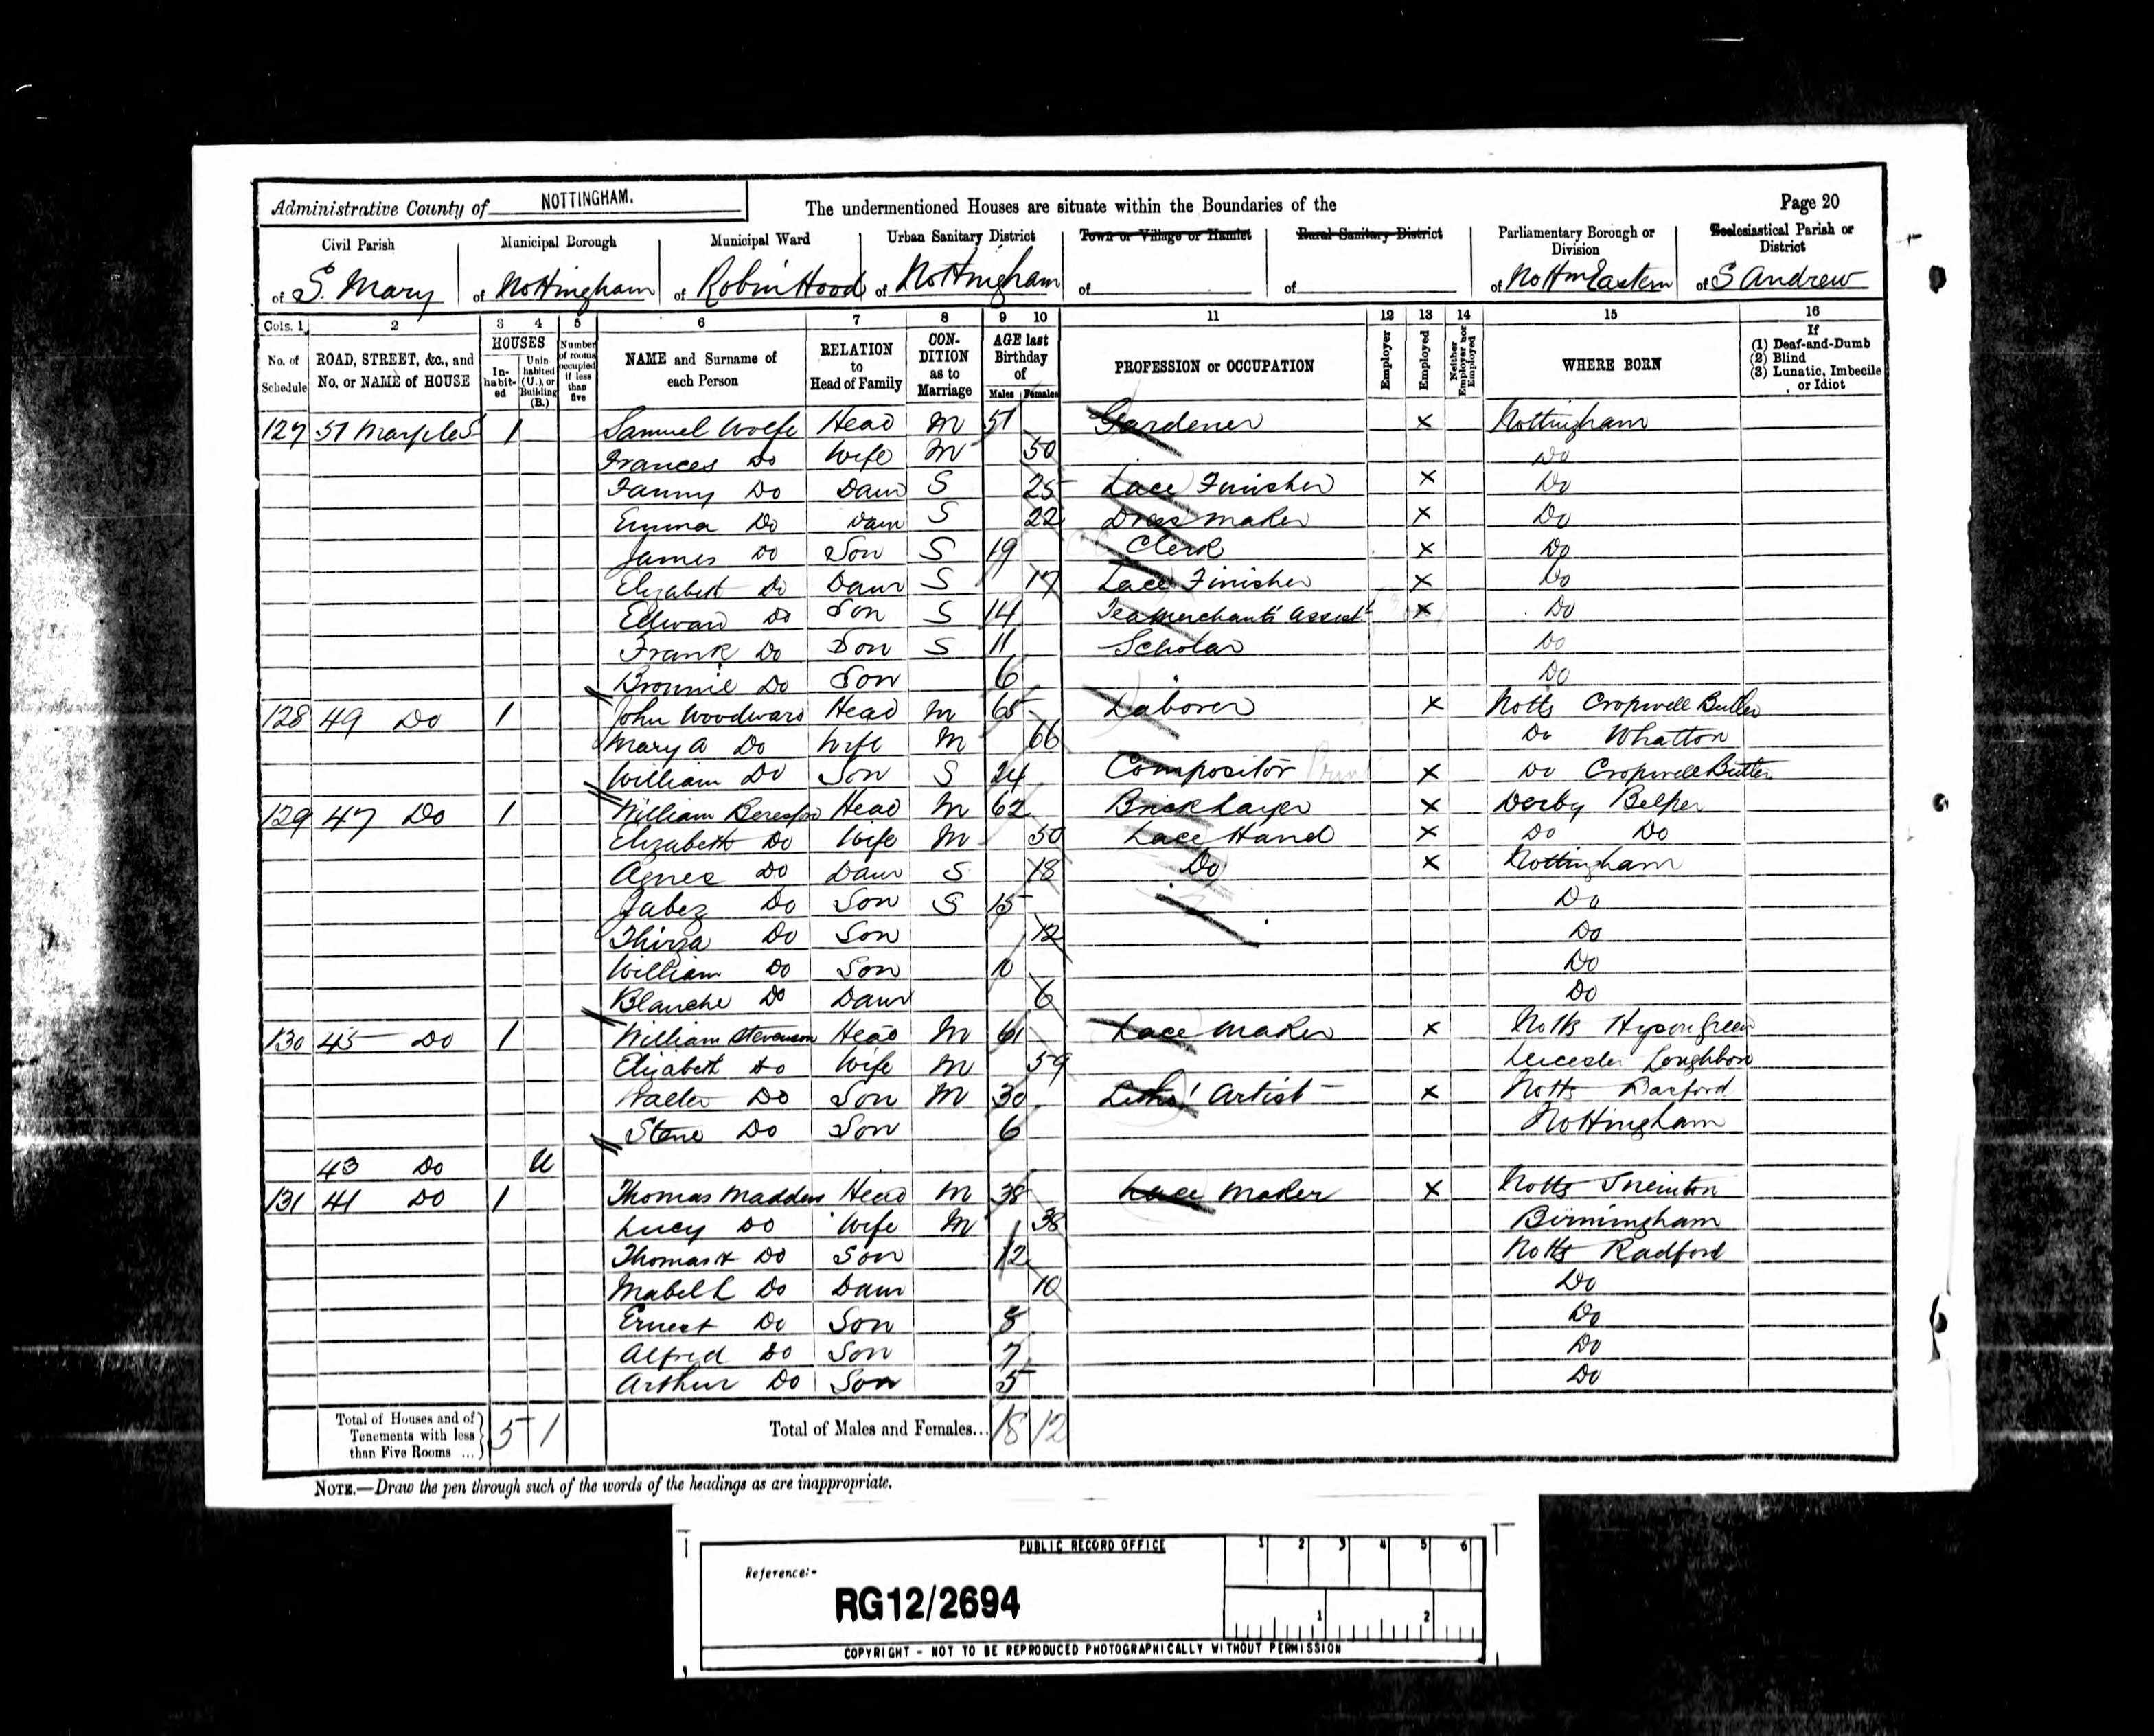 Administrative County of NOTTINGHAM. The undermentioned Houses are situate within the Boundaries of the Page 20
Civil Parish Municipal Borough Municipal Ward Urban Sanitary District Town or Village or Hamlet Rural Sanitary District Parliamentary Borough or Division Ecclesiastical Parish or District
of S. Mary of Nottingham of Robin Hood of Nottingham of of of Nottm Eastern of S Andrew
Cols. 1 2 3 4 5 6 7 8 9 10 11 12 13 14 15 16
No. of Schedule ROAD, STREET, &c., and No. or NAME of HOUSE HOUSES In-habit-ed Unin habited (U.), or Building (B.) Number of rooms occupied if less than five NAME and Surname of each Person RELATION to Head of Family CON-DITION as to Marriage AGE last Birthday of Males Females PROFESSION or OCCUPATION Employer Employed Neither Employer nor Employed WHERE BORN If (1) Deaf-and-Dumb (2) Blind (3) Lunatic, Imbecile or Idiot
127 51 Marple S 1 Samuel Wolfe Head M 51 Gardener X Nottingham
Frances Do Wife M 50 Do
Fanny Do Daur S 25 Lace Finisher X Do
Emma Do Daur S 22 Dress maker X Do
James Do Son S 19 Clerk X Do
Elizabeth Do Daur S 17 Lace Finisher X Do
Edward Do Son S 14 Tea Merchants Assist X Do
Frank Do Son S 11 Scholar Do
Do Son 6 " Do
128 49 Do 1 John Woodward Head M 65 Laborer X Notts Cropwell Butler
Mary A Do Wife M 66 Do Whatton
William Do Son S 24 Compositor X Do Cropwell Butler
129 47 Do 1 William Beresford Head M 62 Bricklayer X Derby Belper
Elizabeth Do Wife M 50 Lace Hand X Do Do
Agnes Do Daur S 18 Do X Nottingham
Jabez Do Son S 15 Do
Thirza Do Son 12 Do
William Do Son 10 Do
Blanche Do Daur 6 Do
130 45 Do 1 William Stevenson Head M 61 Lace Maker X Notts Hyson Green
Elizabeth Do Wife M 59 Leicester Loughboro
Walter Do Son M 30 Litho' Artist X Notts Basford
Do Son 6 Nottingham
43 Do U
131 41 Do 1 Thomas Madders Head M 38 Lace Maker X Notts Sneinton
Lucy Do Wife M 38 Birmingham
Thomas H Do Son 12 Notts Radford
Mabel L Do Daur 10 Do
Ernest Do Son 8 Do
Alfred Do Son 7 Do
Arthur Do Son 5 Do
Total of Houses and of Tenements with less than Five Rooms ... 5 1 Total of Males and Females... 18 12
NOTE.—Draw the pen through such of the words of the headings as are inappropriate.
PUBLIC RECORD OFFICE 1 2 3 4 5 6
Reference:-
RG12/2694
1 2
COPYRIGHT - NOT TO BE REPRODUCED PHOTOGRAPHICALLY WITHOUT PERMISSION